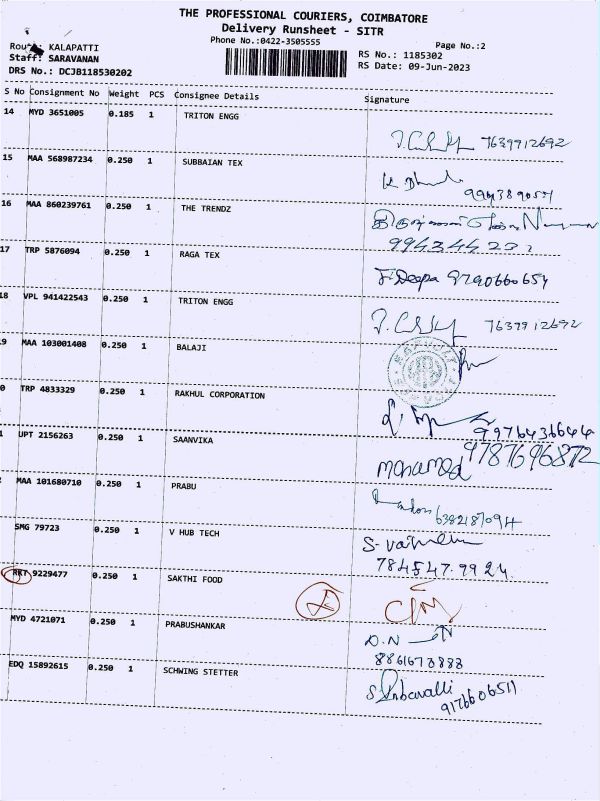 THE PROFESSIONAL COURIERS, COIMBATORE
Delivery Runsheet - SITR
Phone No.:0422-3505555
Page No.:2
KALAPATTI
Staff: SARAVANAN
RS No.: 1185302
DRS No.: DCJB118530202
RS Date: 09-Jun-2023
S No Consignment No Weight PCS Consignee Details Signature
14 MYD 3651005 0.185 1 TRITON ENGG
7639912692
15 MAA 568987234 0.250 1 SUBBAIAN TEX
16 MAA 860239761 0.250 1 THE TRENDZ
17 TRP 5876094 0.250 1 RAGA TEX
F. Deepa 9790660654
18 VPL 941422543 0.250 1 TRITON ENGG
7639912692
9 MAA 103001408 0.250 1 BALAJI
0 TRP 4833329 0.250 1 RAKHUL CORPORATION
9976436644
1 UPT 2156263 0.250 1 SAANVIKA
mohamed 9787696872
MAA 101680710 0.250 1 PRABU
6382187094
SMG 79723 0.250 1 V HUB TECH
784547 9924
9229477 0.250 1 SAKTHI FOOD
MYD 4721071 0.250 1 PRABUSHANKAR
D.N
8861673888
EDQ 15892615 0.250 1 SCHWING STETTER
9176606511